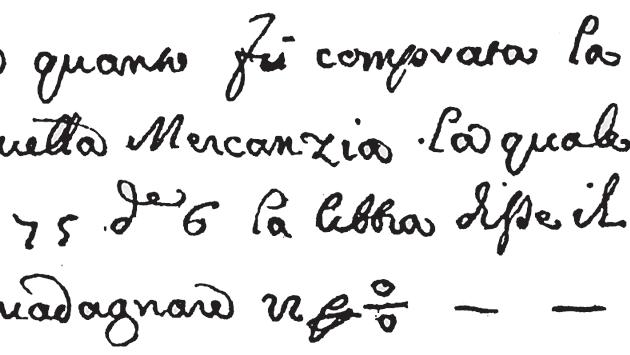 quanto fù comprata la
uella Mercanzia. la quale
75 de 6 la libbra disse il
uadagnare 12 per %